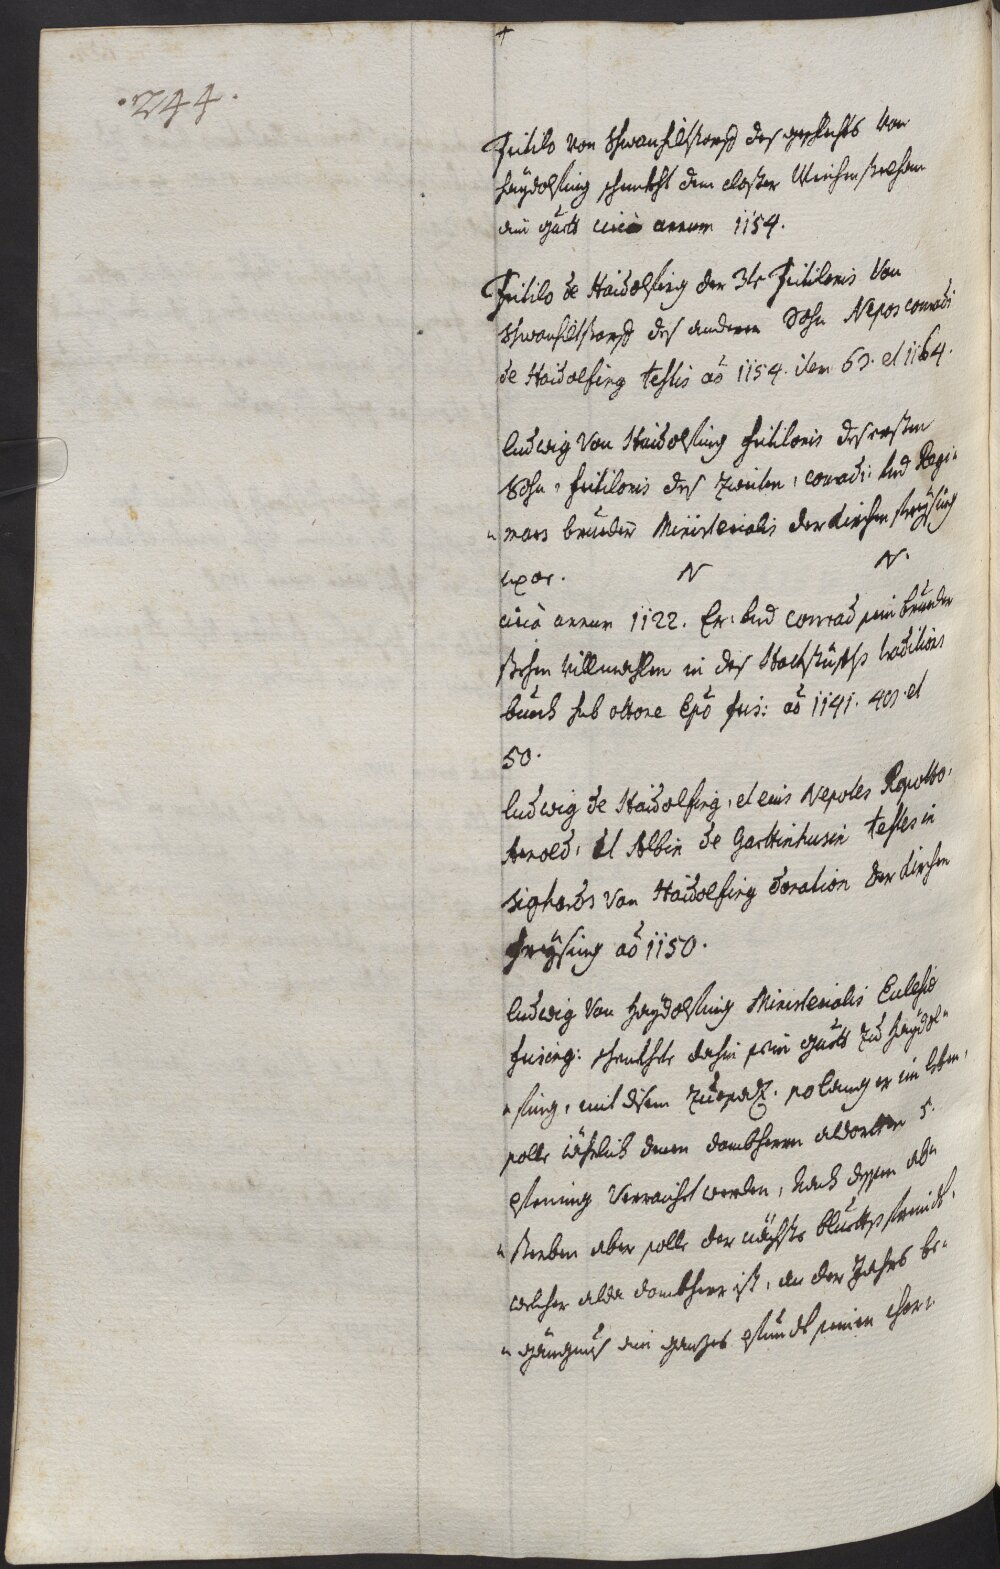 .244.
Fritilo von Schwanhiltstorff des geschlechts von
Haÿdolfing schenckht dem closter Weichenstephan
ain guett circà annum 1154.
Fritilo de Haidolfing der 3te Fritilonis von
Schwanhiltstorff des anderen Sohn Nepos conradi
de Haidolfing testis aõ 1154. item 60. et 1164.
Ludwig von Haidolfing Fritilonis des ersten
Sohn, Fritilonis des zweiten, conradi: und Regi-
-mars brueder Ministerialis der kirchen freÿsing
uxor. N N.
circà annum 1122. Er: und conrad sein brueder
stehen villmahlen in des Hochstüffts traditions
buech sub ottone Epõ fris: aõ 1141. 49. et
50.
Ludwig de Haidolfing, et eius Nepotes Rapotto,
Arnold, et Albin de Garttinhusin testes in
Sighards von Haidolfing donation der kirchen
freÿsing aõ 1150.
Ludwig von Haÿdolfing Ministerialis Eclesiæ
frising: schenckhte dahin sein guett zu Haÿdol-
-fing, mit disem zuesaz. so lang er im leben,
solle iährlich denen dombherrn aldorten 5.
pfening verraicht werden, nach dessen ab-
-sterben aber solle der nächste bluetts freindt,
welcher alda dombherr ist, an der Jahrs be-
-gängnus ain ganzes pfundt seinen chor-